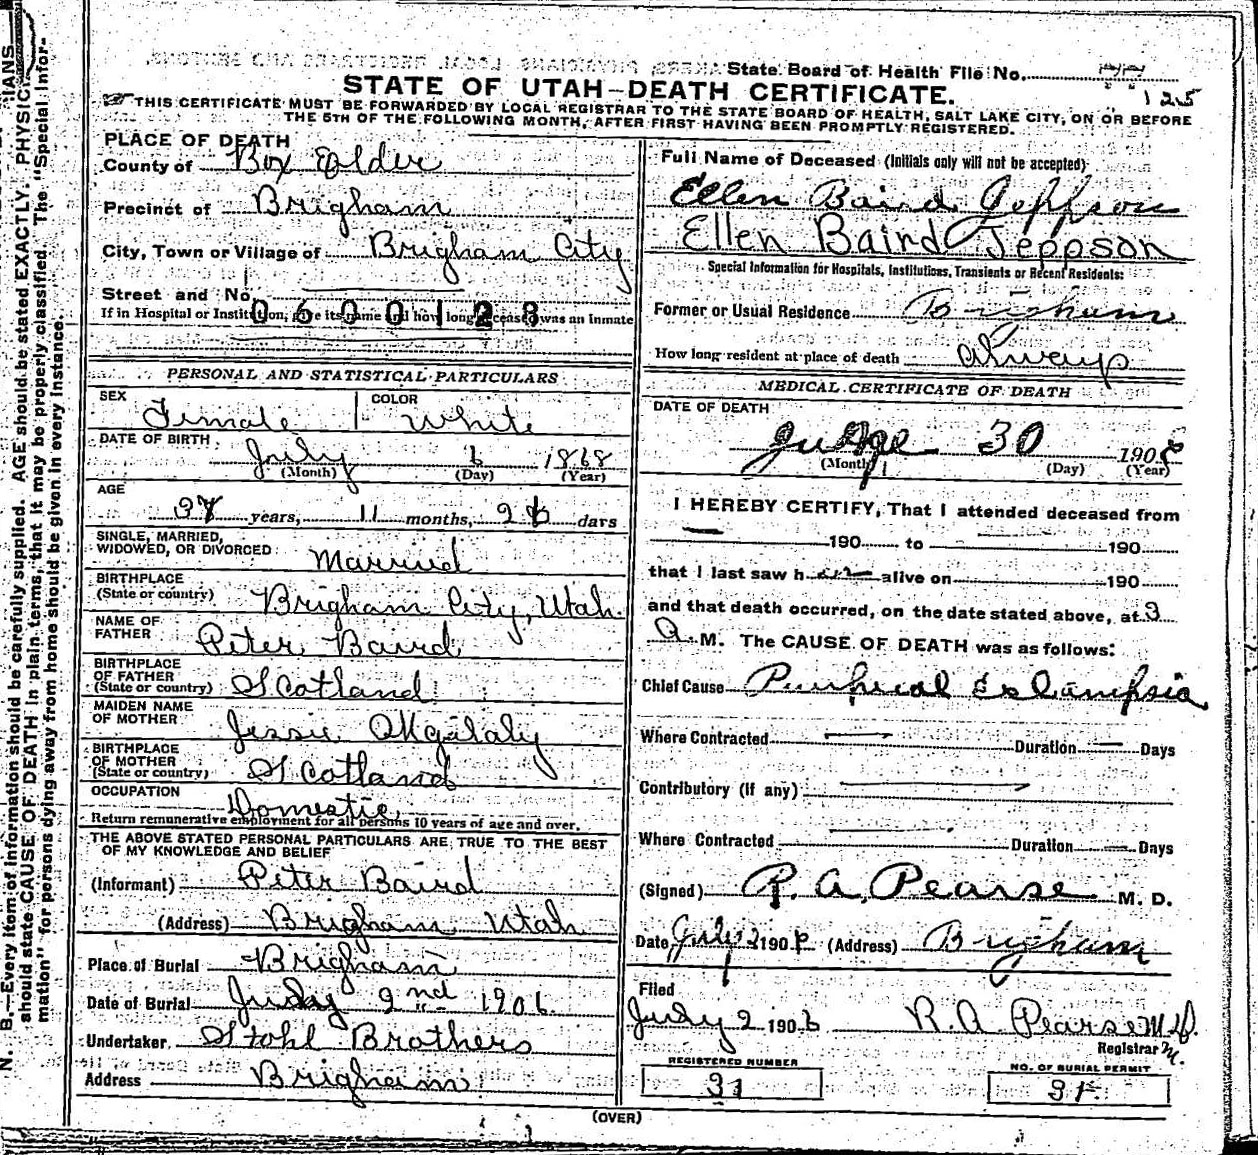 State Board of Health File No.
125
STATE OF UTAH—DEATH CERTIFICATE.
THIS CERTIFICATE MUST BE FORWARDED BY LOCAL REGISTRAR TO THE STATE BOARD OF HEALTH, SALT LAKE CITY, ON OR BEFORE
THE 5TH OF THE FOLLOWING MONTH, AFTER FIRST HAVING BEEN PROMPTLY REGISTERED.
PLACE OF DEATH
County of Box Elder
Precinct of Brigham
City, Town or Village of Brigham City
Street and No.
0600128
If in Hospital or Institution, give its name and how long deceased was an inmate
PERSONAL AND STATISTICAL PARTICULARS
SEX Female COLOR White
DATE OF BIRTH July 6 1868
(Month) (Day) (Year)
AGE
37 years, 11 months, days
SINGLE, MARRIED,
WIDOWED, OR DIVORCED Married
BIRTHPLACE
(State or country) Brigham City, Utah.
NAME OF
FATHER Peter Baird
BIRTHPLACE
OF FATHER
(State or country) Scotland
MAIDEN NAME
OF MOTHER Jessie
BIRTHPLACE
OF MOTHER
(State or country) Scotland
OCCUPATION Domestic
Return remunerative employment for all persons 10 years of age and over.
THE ABOVE STATED PERSONAL PARTICULARS ARE TRUE TO THE BEST
OF MY KNOWLEDGE AND BELIEF
(Informant) Peter Baird
(Address) Brigham Utah
Place of Burial Brigham
Date of Burial July 2nd 1906.
Undertaker Stohl Brothers
Address Brigham
Full Name of Deceased (Initials only will not be accepted)
Ellen Baird Jeppson
Ellen Baird Jeppson
Special Information for Hospitals, Institutions, Transients or Recent Residents:
Former or Usual Residence Brigham
How long resident at place of death always
MEDICAL CERTIFICATE OF DEATH
DATE OF DEATH
30 190
(Month) (Day) (Year)
I HEREBY CERTIFY, That I attended deceased from
190 to 190
that I last saw her alive on 190
and that death occurred, on the date stated above, at 3
A. M. The CAUSE OF DEATH was as follows:
Chief Cause Puerperal Eclampsia
Where Contracted Duration Days
Contributory (If any)
Where Contracted Duration Days
(Signed) R. A. Pearse M. D.
Date July 2 190 (Address) Brigham
Filed
July 2 1906 R. A. Pearse M.D.
Registrar
REGISTERED NUMBER
31
NO. OF BURIAL PERMIT
31
(OVER)
N. B.—Every item of information should be carefully supplied. AGE should be stated EXACTLY. PHYSICIANS
should state CAUSE OF DEATH in plain terms, that it may be properly classified. The "Special Infor-
mation" for persons dying away from home should be given in every instance.